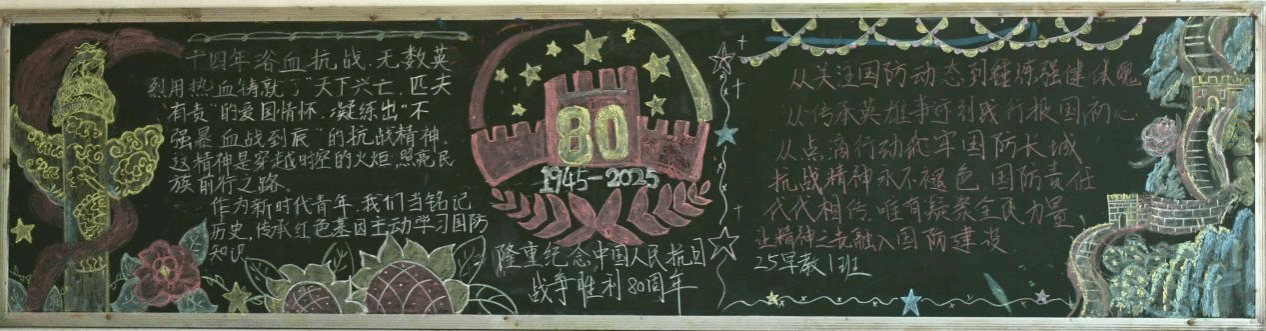 十四年浴血抗战,无数英
烈用热血铸就了"天下兴亡,匹夫
有责"的爱国情怀,凝练出"不
强暴血战到底"的抗战精神。
这精神是穿越时空的火炬,照亮民
族前行之路。
作为新时代青年,我们当铭记
历史,传承红色基因主动学习国防
知识
80
1945-2025
隆重纪念中国人民抗日
战争胜利80周年
从关注国防动态到锤炼强健体魄
从传承英雄事迹到践行报国初心
从点滴行动筑牢国防长城
抗战精神永不褪色,国防责任
代代相传,唯有凝聚全民力量
让精神之光融入国防建设
25早教1班